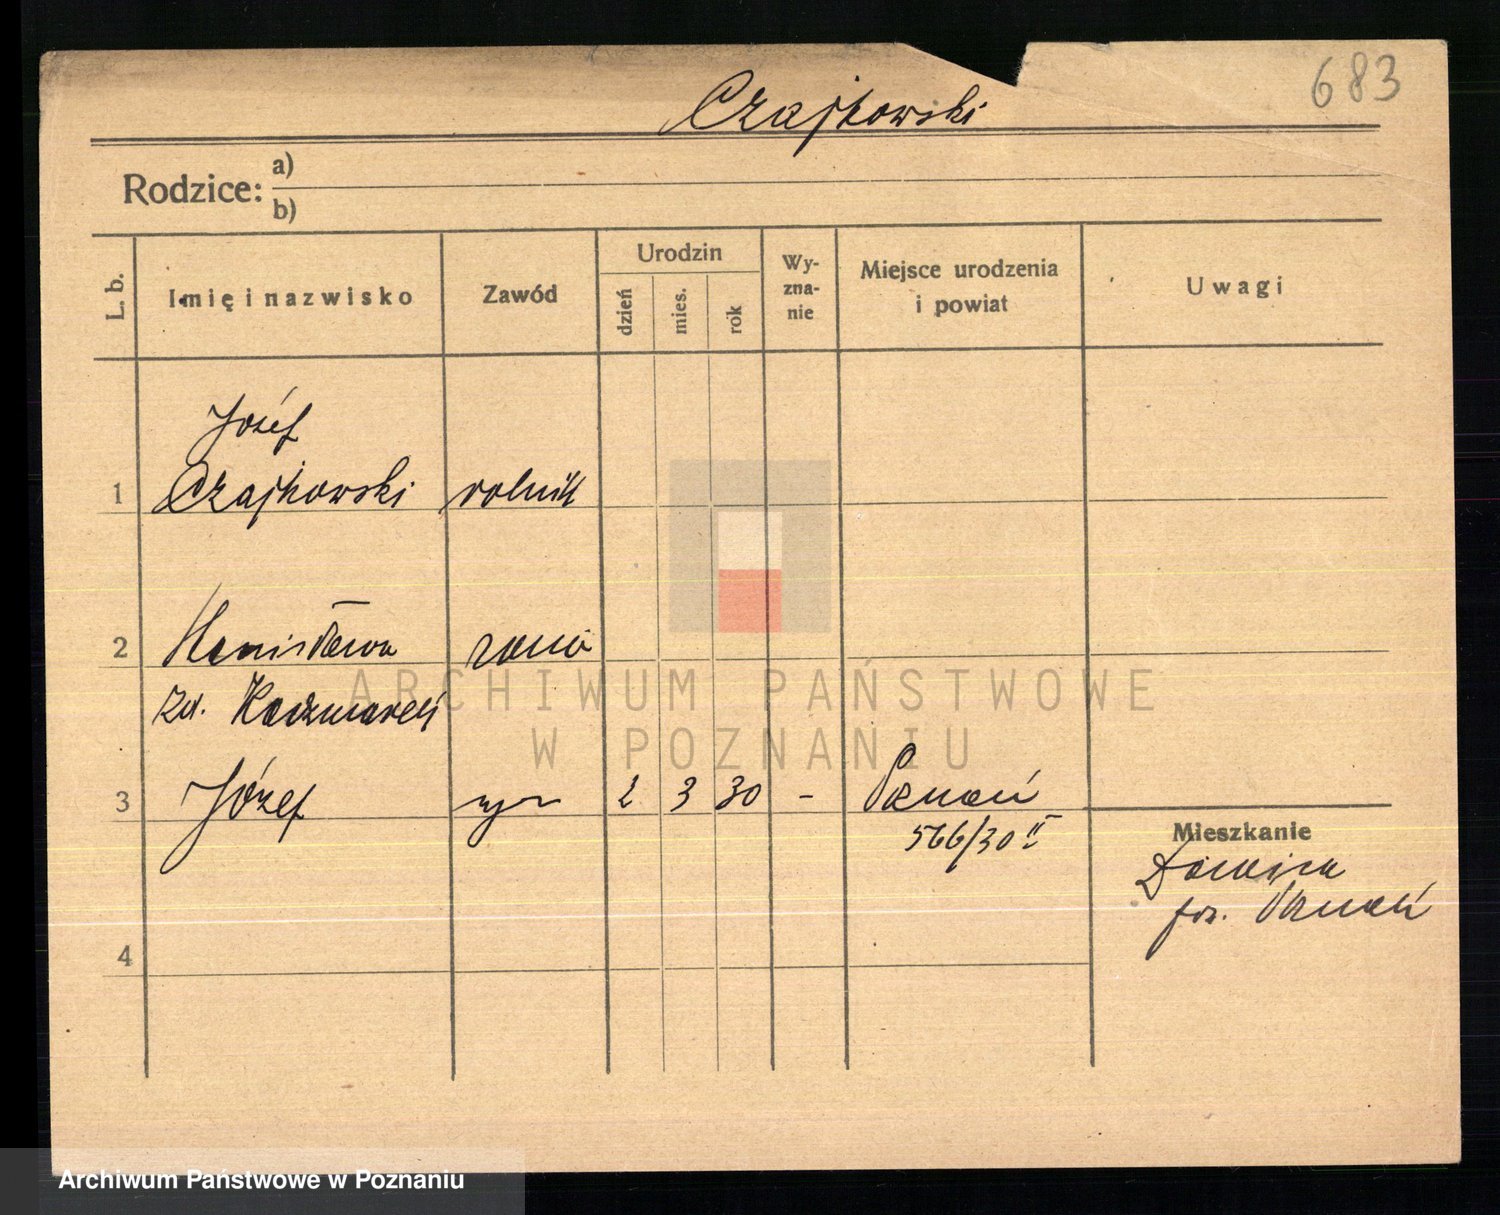 683
Czajkowski
Rodzice: a)
b)
L. b.
Imię i nazwisko
Zawód
Urodzin
dzień
mies.
rok
Wy-
zna-
nie
Miejsce urodzenia
i powiat
Uwagi
Józef
1 Czajkowski rolnik
2 Stanisława żona
Kaczmarek
3 Józef syn 2 3 30 - Poznań
566/30 II
Mieszkanie
Poznań
4
ARCHIWUM PAŃSTWOWE
W POZNANIU
Archiwum Państwowe w Poznaniu